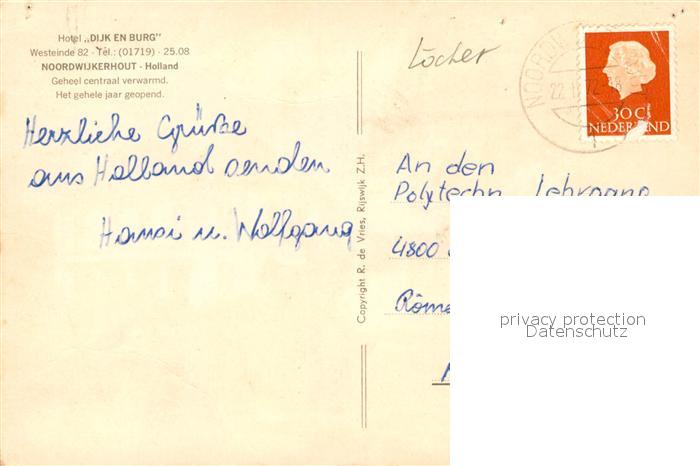 Hotel „DIJK EN BURG"
Westeinde 82 - Tel.: (01719) - 25.08
NOORDWIJKERHOUT - Holland
Geheel centraal verwarmd.
Het gehele jaar geopend.
Herzliche Grüße
aus Holland senden
Hansi u. Wolfgang
Copyright R. de Vries, Rijswijk Z.H.
Locher
NOORDWIJ
22
72
30 C
NEDERLAND
An den
Polytechn. Lehrgang
4800
Röme
privacy protection
Datenschutz